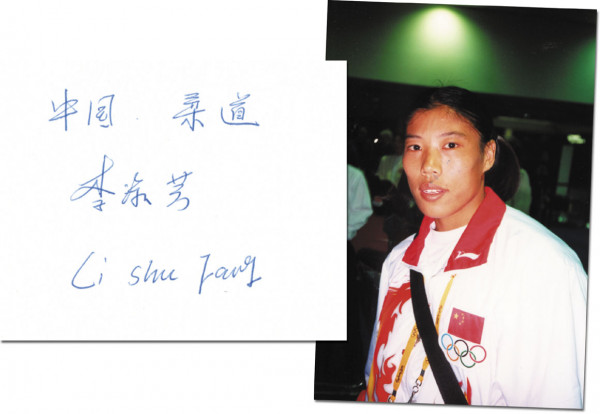 中国 柔道
李淑芳
Li shu Fang